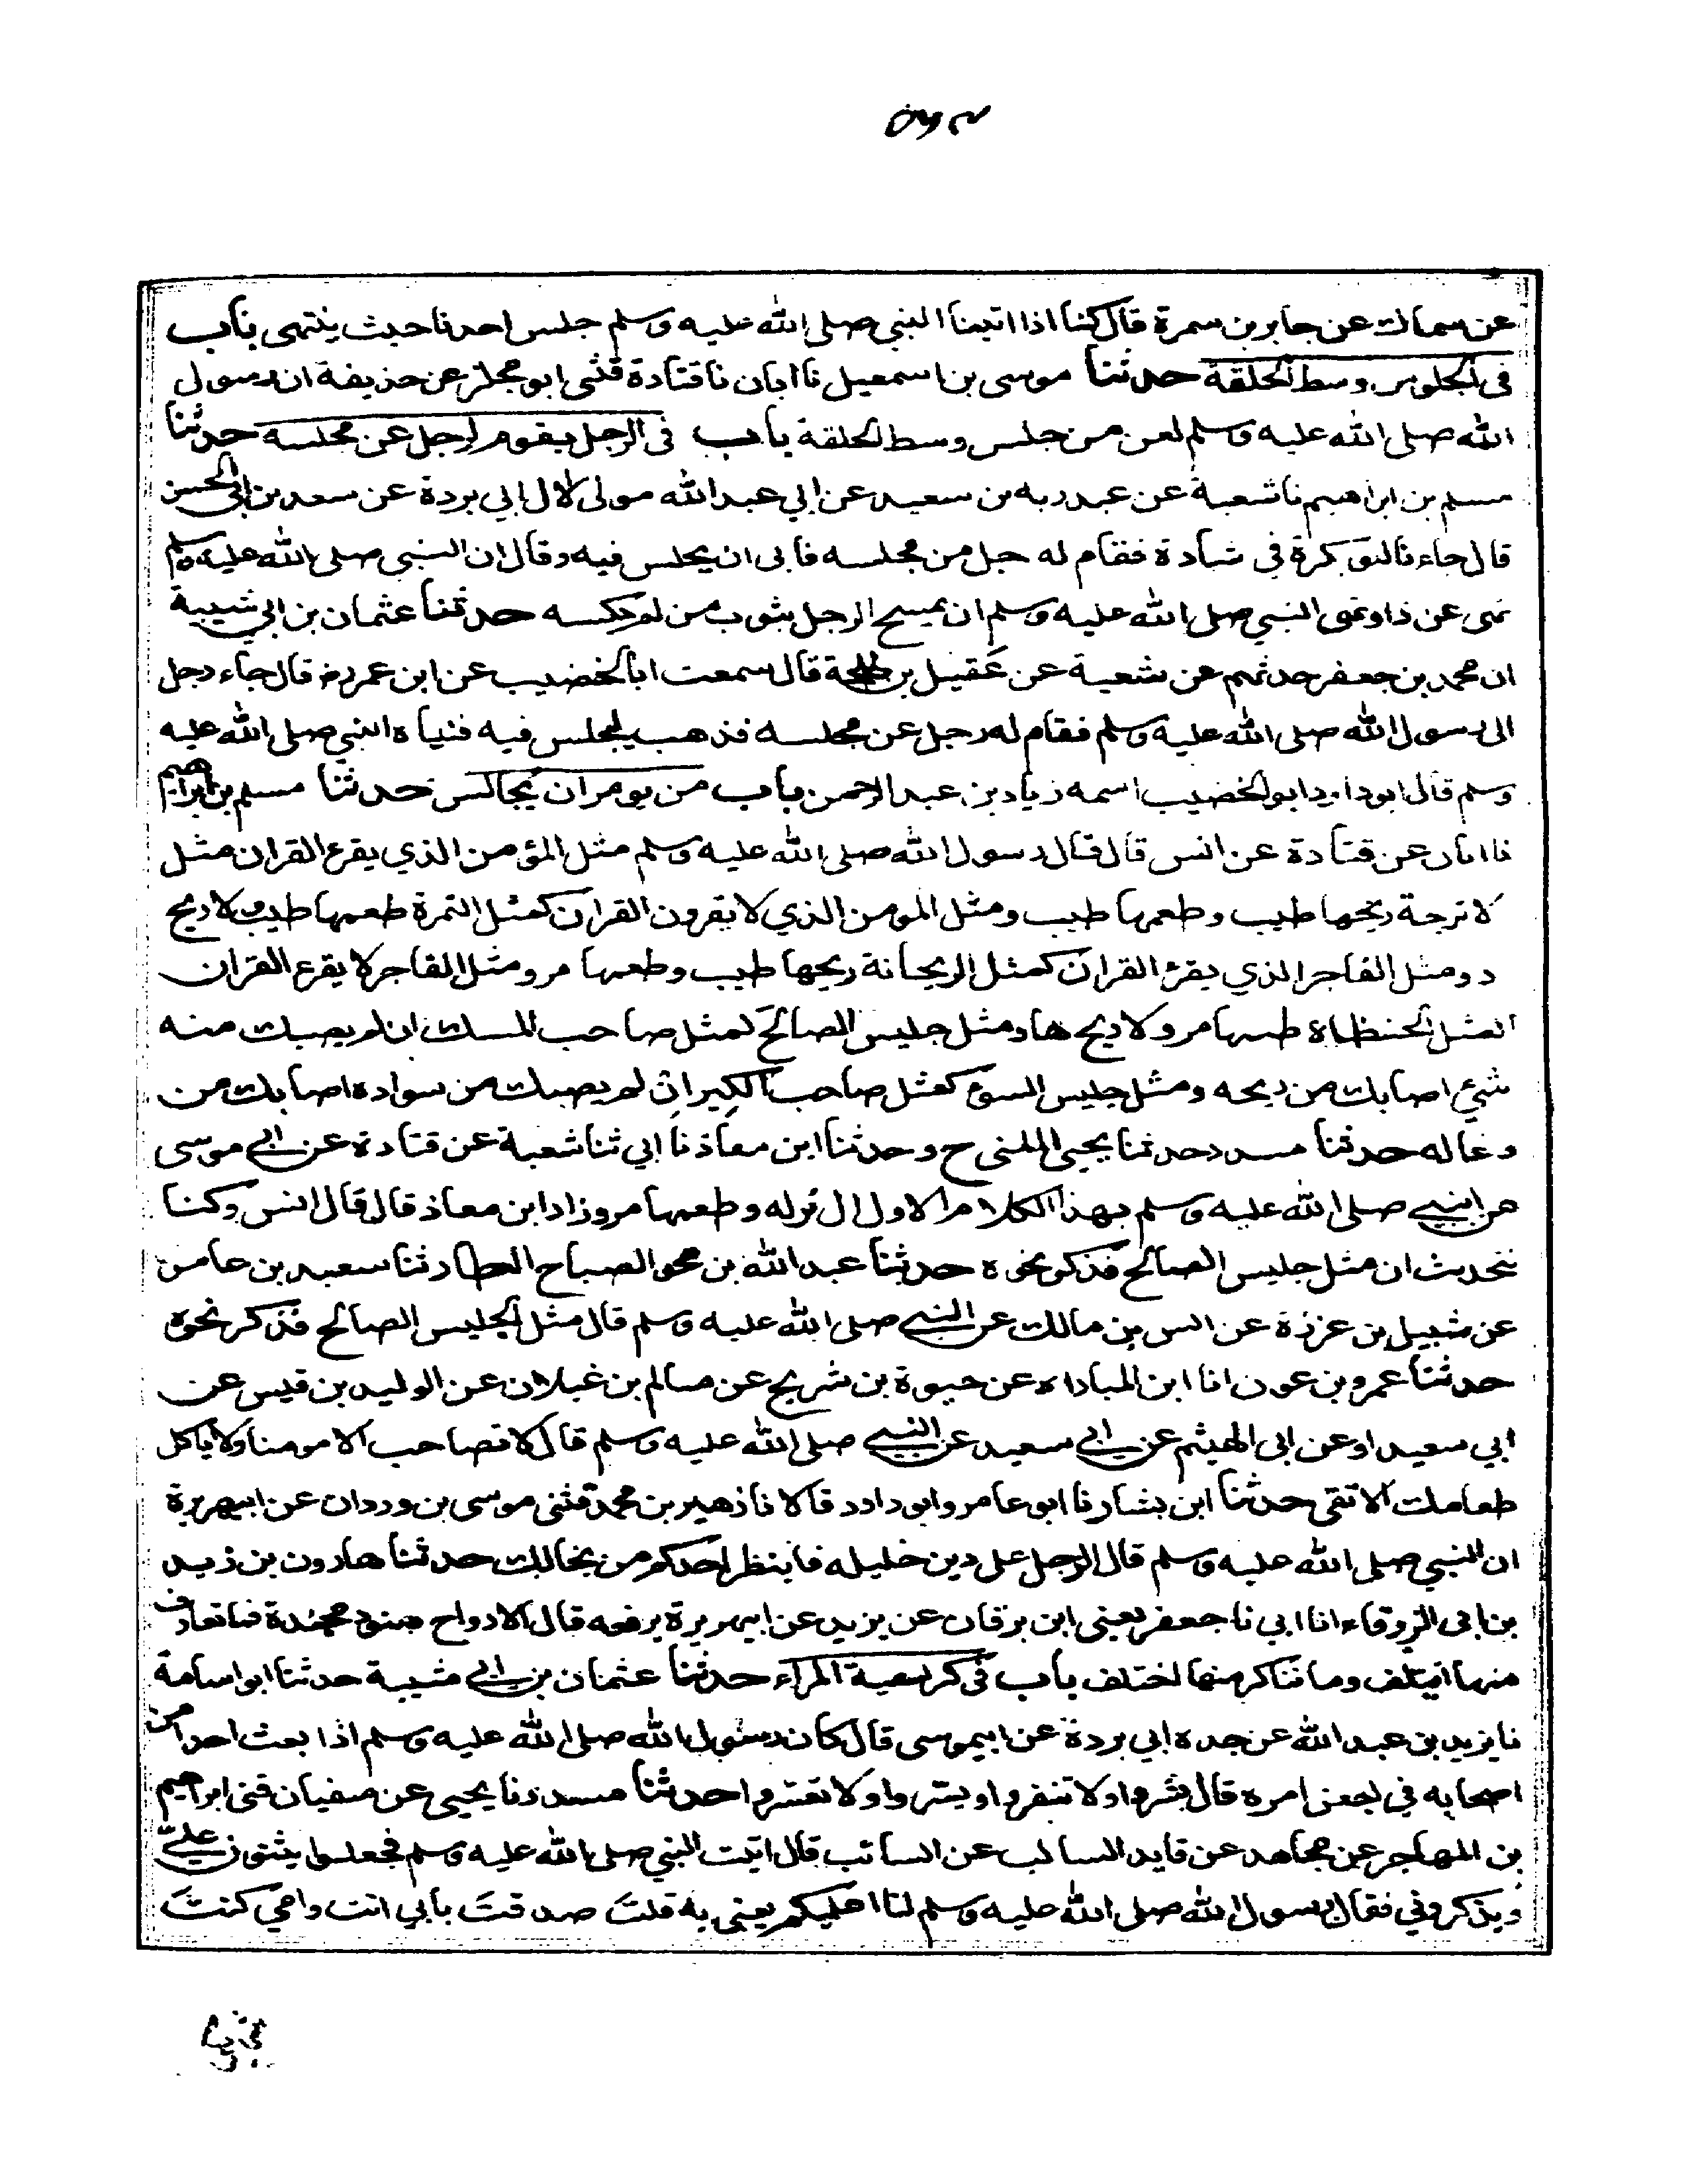 عن سماك عن جابر بن سمرة قال كنا اذا اتينا النبي صلى الله عليه وسلم جلس احدنا حيث ينتهى باب
في الجلوس وسط الحلقة حدثنا موسى بن اسمعيل نا ابان نا قتادة قثنى ابو مجلز عن حذيفة ان رسول
الله صلى الله عليه وسلم لعن من جلس وسط الحلقة باب فى الرجل يقوم لرجل عن مجلسه حدثنا
مسلم بن ابراهيم نا شعبة عن عبد ربه بن سعيد عن ابي عبد الله مولى لال ابي بردة عن سعد بن ابي الحسن
قال جاء نا بكرة في شهادة فقام له جل من مجلسه فابى ان يجلس فيه وقال ان النبى صلى الله عليه وسلم
نهى عن ذا ونهى النبي صلى الله عليه وسلم ان يمسح الرجل بثوب من لم يكسه حدثنا عثمان بن ابي شيبة
ان محمد بن جعفر حدثهم عن شعبة عن عقيل بن طلحة قال سمعت ابا الخضيب عن ابن عمر رض قال جاء رجل
الى رسول الله صلى الله عليه وسلم فقام له رجل عن مجلسه فذهب ليجلس فيه فنهاه النبي صلى الله عليه
وسلم قال ابو داود ابو الخضيب اسمه زياد بن عبد الرحمن باب من يومر ان يجالس حدثنا مسلم بن ابراهيم
نا ابان عن قتادة عن انس قال قال رسول الله صلى الله عليه وسلم مثل المؤمن الذي يقرء القران مثل
لاترجة ريحها طيب وطعمها طيب ومثل المومن الذي لا يقرون القران كمثل التمرة طعمها طيب ولا ريح
د ومثل الفاجر الذي يقرء القران كمثل الريحانة ريحها طيب وطعمها مر ومثل الفاجر لا يقرء القران
المثل الحنظلة طعمها مر ولا ريح هاد مثل جليس الصالح كمثل صاحب المسك ان لم يصبك منه
شيء اصابك من ريحه ومثل جليس السوء كمثل صاحب الكير ان لم يصبك من سواده اصابك من
دخاله حدثنا مسدد حدثنا يحيى المثنى ح وحدثنا ابن معاذ نا ابي ثنا شعبة عن قتادة عن ابي موسى
عن النبي صلى الله عليه وسلم بهذا الكلام الاول ال قوله وطعمها مر وزاد ابن معاذ قال قال انس وكنا
نتحدث ان مثل جليس الصالح فذكر نحوه حدثنا عبد الله بن محو الصباح العطار ثنا سعيد بن عامر
عن شبيل بن عزرة عن انس بن مالك عن النبي صلى الله عليه وسلم قال مثل الجليس الصالح فذكر نحوه
حدثنا عمرو بن عون انا ابن المباداه عن حيوة بن شريح عن سالم بن غيلان عن الوليد بن قيس عن
ابي سعيد او عن ابى الهيثم عن ابي سعيد عن النبي صلى الله عليه وسلم قال لا تصاحب الا مومنا ولا ياكل
طعامك الا تقى حدثنا ابن بشار نا ابو عامر وابو داود قالا نا زهير بن محمد قثنى موسى بن وردان عن ابيهريرة
ان النبي صلى الله عليه وسلم قال الرجل على دين خليله فاينظر احدكم من يخالك حدثنا هارون بن زيد
بن ابى الزرقاء انا ابي نا جعفر يعنى ابن برقان عن يزيد عن ابيهريرة يرفعه قال الارواح جنود مجندة فما تعارف
منها ايتلف وما تناكر منها اختلف باب فى كراهية المراء حدثنا عثمان بن ابي شيبة حدثنا ابو اسامة
نا يزيد بن عبد الله عن جده ابي بردة عن ابيموسى قال كان رسول الله صلى الله عليه وسلم اذا بعث احدا من
اصحابه في بعض امره قال بشروا ولا تنفروا ويسروا ولا تعسروا حدثنا مسدد نا يحيى عن سفيان قثنى ابراهيم
بن المهاجر عن مجاهد عن قايد السائب عن السائب قال اتيت النبي صلى الله عليه وسلم فجعلوا يثنون علي
ويذكروني فقال رسول الله صلى الله عليه وسلم لنا اعليكم يعنى به قلت صدقت بابي انت وامي كنت